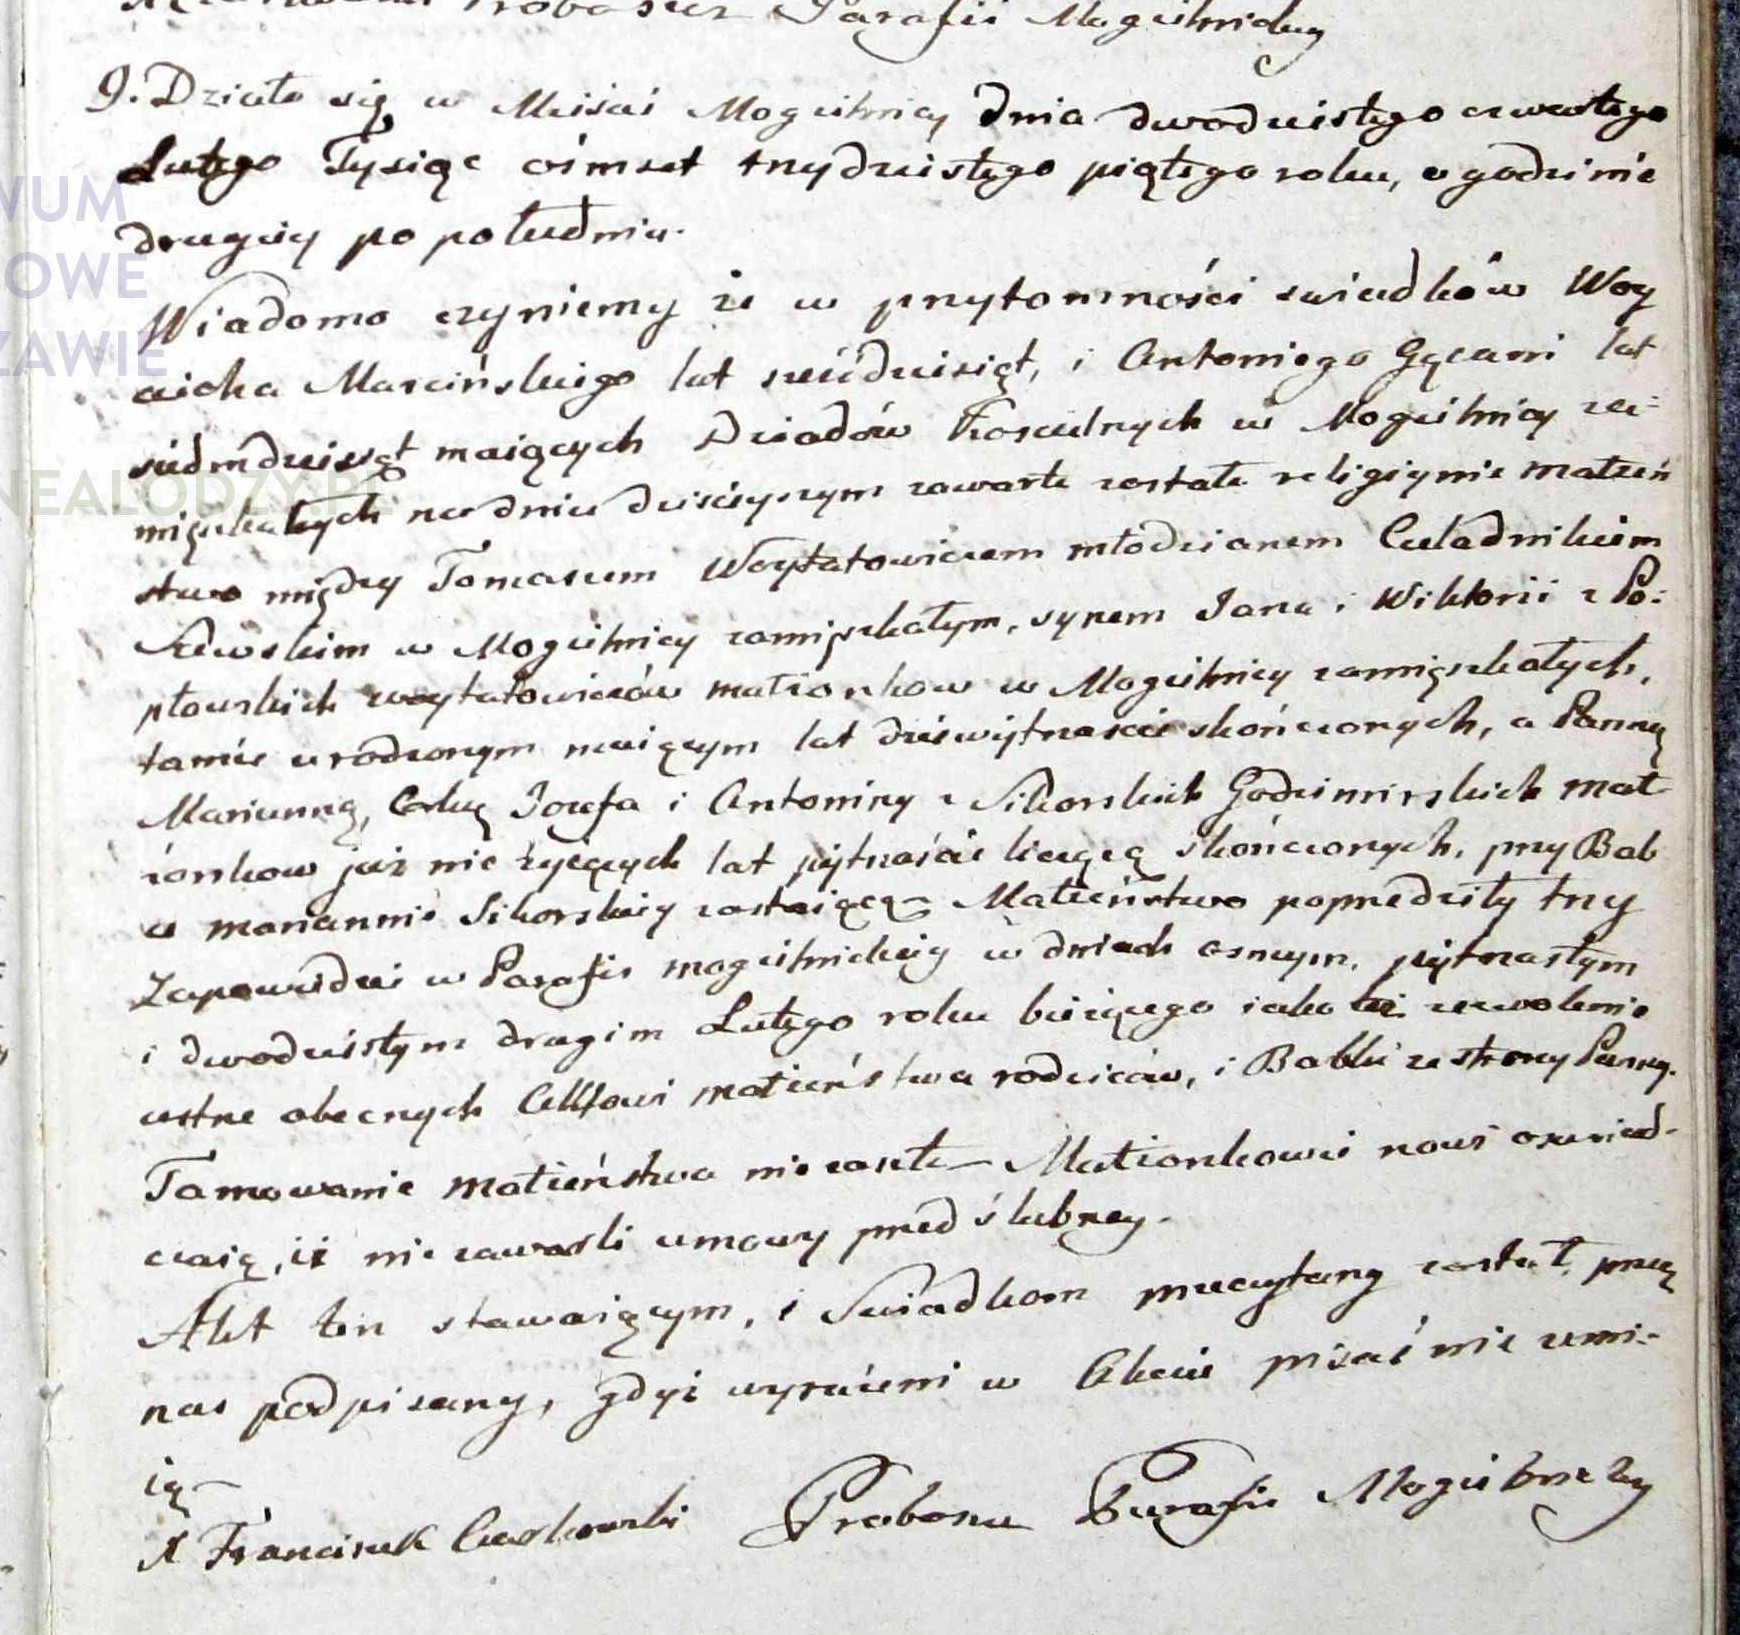 Proboszcz Parafii Mogielnickiey
9. Działo się w Mieście Mogielnicy dnia dwudziestego czwartego
Lutego Tysiąc ośmset trzydziestego piątego roku, o godzinie
drugiey po południu.
Wiadomo czyniemy że w przytomności swiadków Woy
ciecha Marcińskiego lat sześćdziesiąt, i Antoniego lat
siedmdziesiąt maiących Dziadów Koscielnych w Mogielnicy za-
mięszkałych na dniu dzisieyszym zawarte zostało religiynie małżeń
stwo między Tomaszem Woytatowiczem młodzianem Czeladnikiem
Szewskim w Mogielnicy zamięszkałym, synem Jana i Wiktorii z Po-
płowskich Woytatowiczów małżonkow w Mogielnicy zamięszkałych,
tamże urodzonym maiącym lat dziewiętnaście skończonych, a Panną
Marianną, Corką Jozefa i Antoniny z Sikorskich Godzimirskich mał-
żonkow już nie żyiących lat piętnaście liczącą skończonych, przy Bab
ce Mariannie Sikorskiey zostaiącą – Małżeństwo poprzedziły trzy
Zapowiedzi w Parafii mogielnickiey w dniach osmym, piętnastym
i dwudziestym drugim Lutego roku bieżącego iako też zezwolenie
ustne obecnych Aktowi małżeństwa rodziców, i Babki ze strony Panny.
Tamowanie małżeństwa nie zaszło – Małżonkowie nowi oswiad-
czaią, iż nie zawarli umowy przed ślubney.
Akt ten stawaiącym, i Swiadkom przeczytany został, przez
nas podpisany, gdyż wyrażeni w Akcie pisać nie umi-
ią –
X Franciszek Proboszcz Parafii Mogielnickiey
WUM
OWE
ZAWIE
NEALODZY.PL